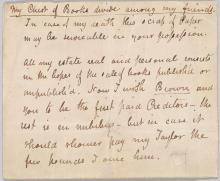 My Chest of Books divide among my friends
In case of my death this scrap of Paper
may be serviceable in your possession.
All my estate real and personal consists
in the hopes of the sale of books publish'd or
unpublish'd. Now I wish Brown and
you to be the first paid Creditors - the
rest is in nubibus - but in case it
should shower pay my Taylor the
few pounds I owe him.